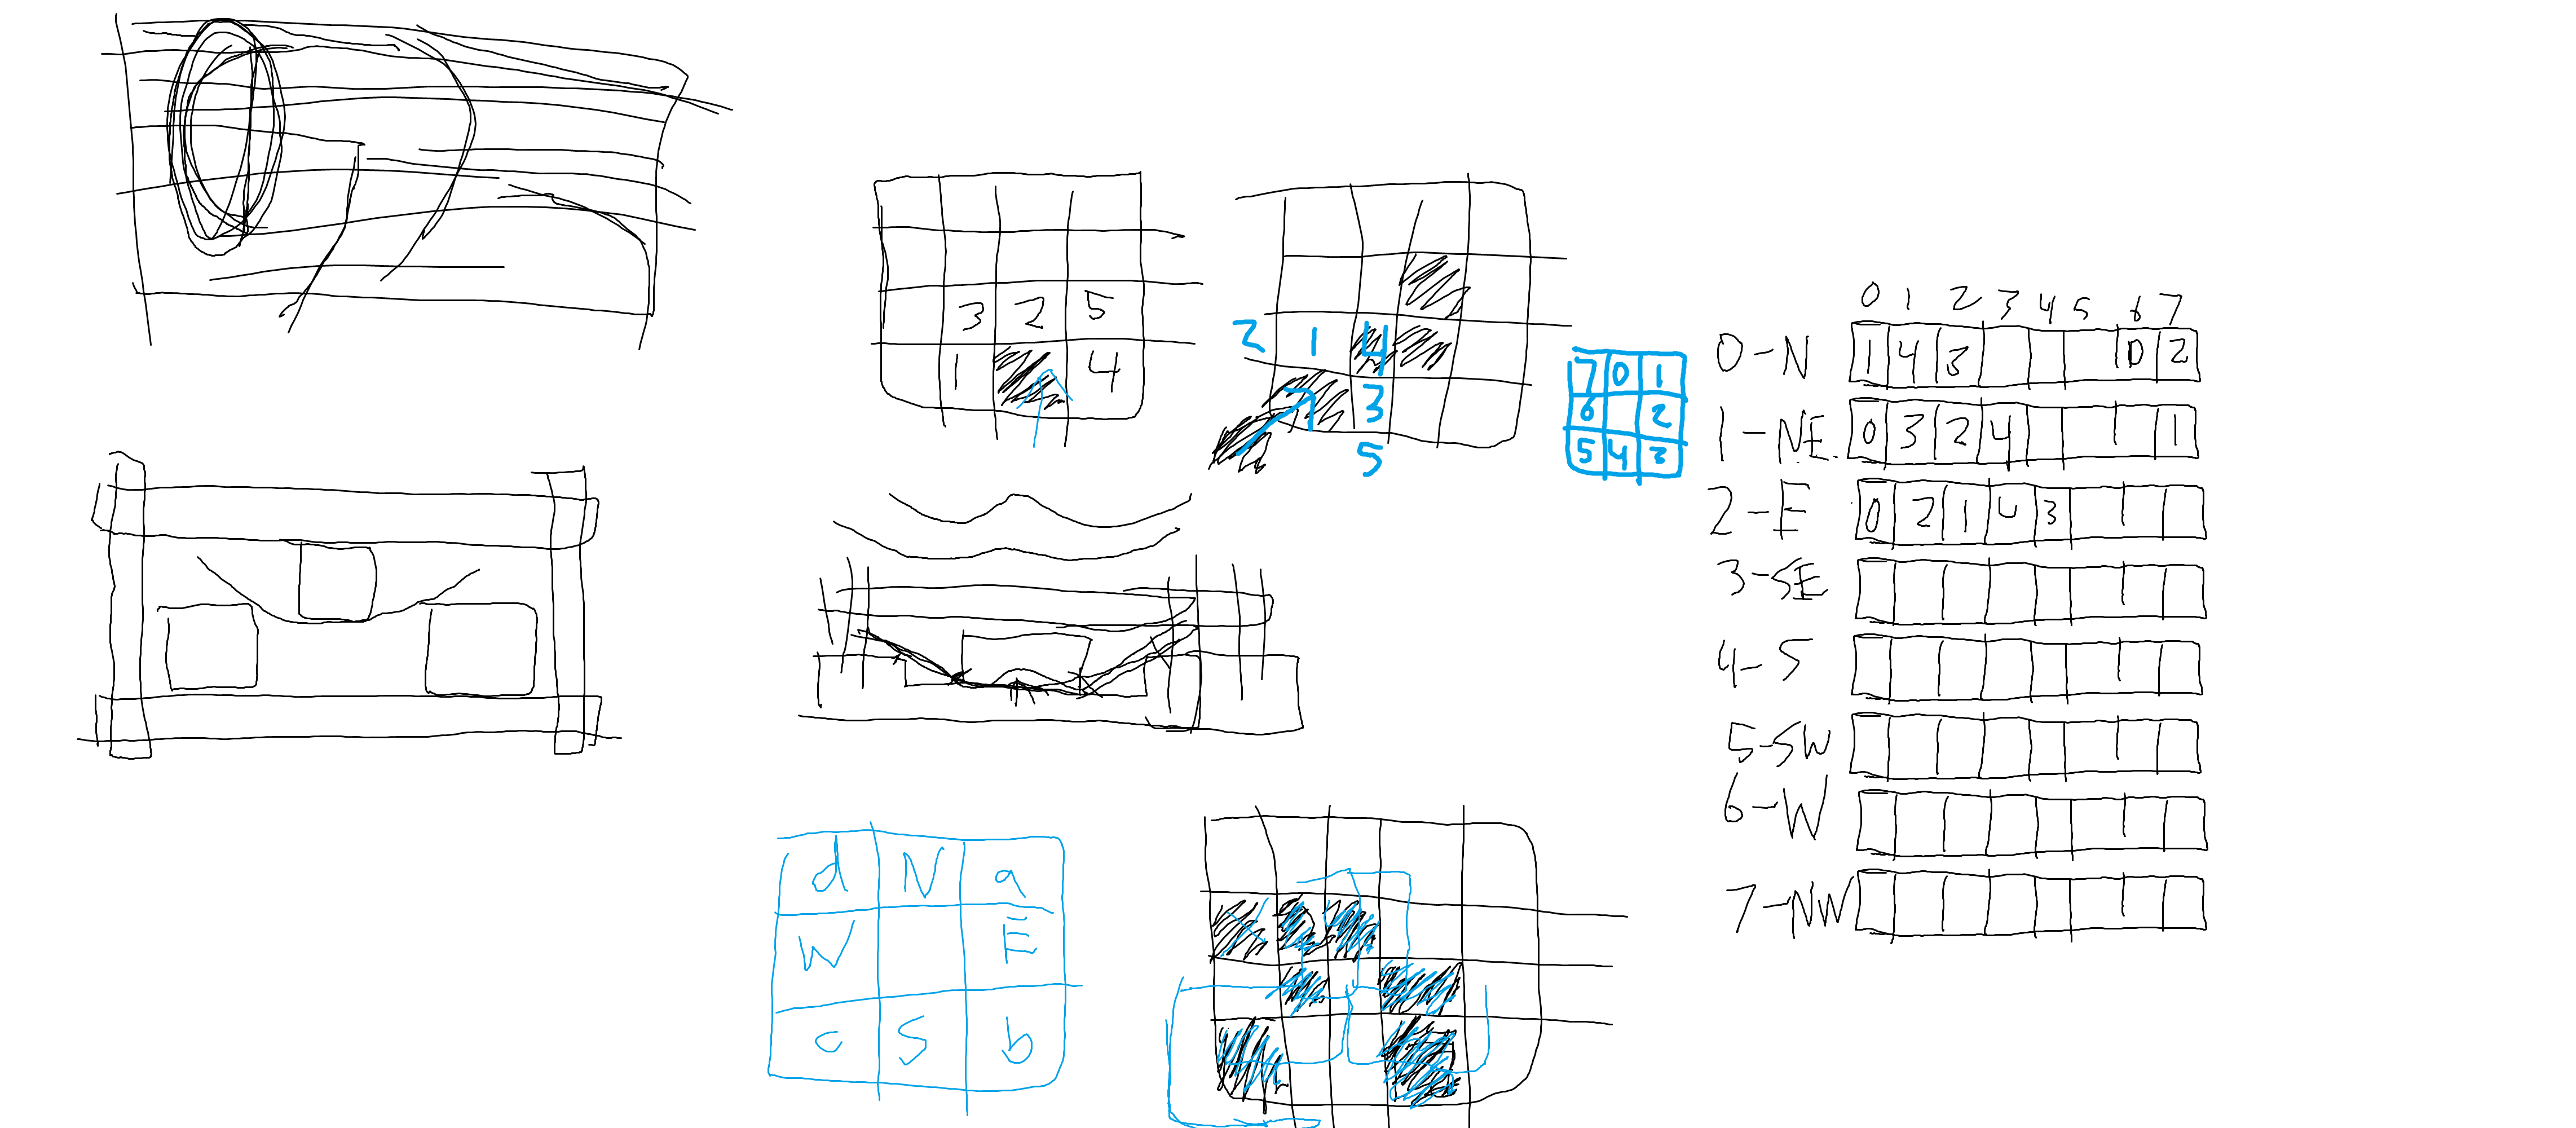 3 2 5
1 4
2 1 4
3
5
7 0 1
6 2
5 4 3
0 1 2 3 4 5 6 7
0-N 1 4 3 0 2
1-NE 0 3 2 4 1
2-E 0 2 1 4 3
3-SE
4-S
5-SW
6-W
7-NW
d N a
W E
c S b